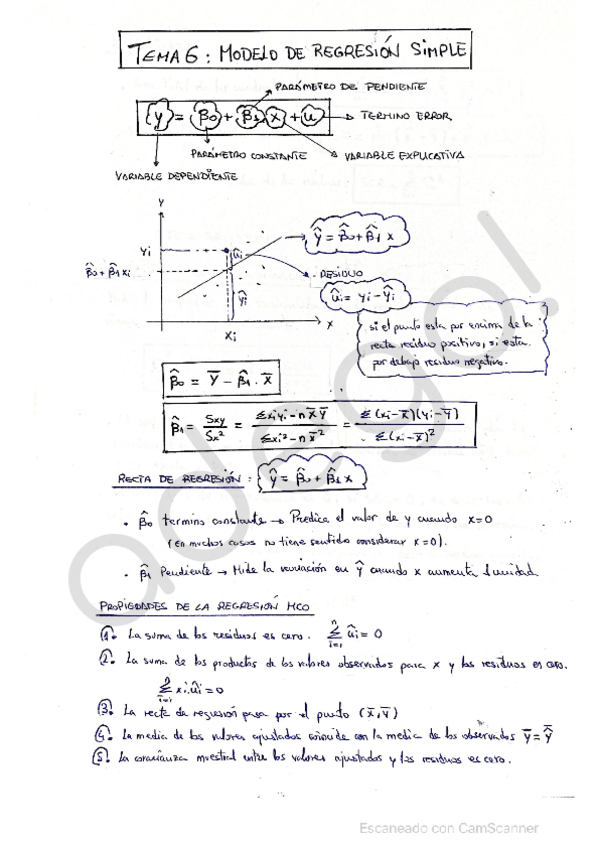 TEMA 6: MODELO DE REGRESIÓN SIMPLE
PARÁMETRO DE PENDIENTE
y = β0 + β1 x + u → TERMINO ERROR
PARÁMETRO CONSTANTE
VARIABLE EXPLICATIVA
VARIABLE DEPENDIENTE
Y
ŷ = β̂0 + β̂1 x
yi
ûi
RESIDUO
β̂0 + β̂1 xi
ŷi
ûi = yi − ŷi
xi
x
si el punto esta por encima de la
recta residuo positivo, si esta
por debajo residuo negativo.
β̂0 = Y̅ − β̂1 · X̅
β̂1 = Sxy / Sx² = (Σxiyi − n X̅ Y̅) / (Σxi² − n X̅²) = Σ(xi − X̅)(yi − Y̅) / Σ(xi − X̅)²
RECTA DE REGRESIÓN: ŷ = β̂0 + β̂1 x
• β̂0 termino constante → Predice el valor de y cuando x=0
(en muchos casos no tiene sentido considerar x=0).
• β̂1 Pendiente → Mide la variación en ŷ cuando x aumenta 1 unidad.
PROPIEDADES DE LA REGRESIÓN MCO
1. La suma de los residuos es cero. Σ(i=1, n) ûi = 0
2. La suma de los productos de los valores observados para x y los residuos es cero.
Σ(i=1, n) xi ûi = 0
3. La recta de regresión pasa por el punto (x̅, y̅)
4. La media de los valores ajustados coincide con la media de los observados y̅ = ŷ̅
5. La covarianza muestral entre los valores ajustados y los residuos es cero.
adego!
Escaneado con CamScanner